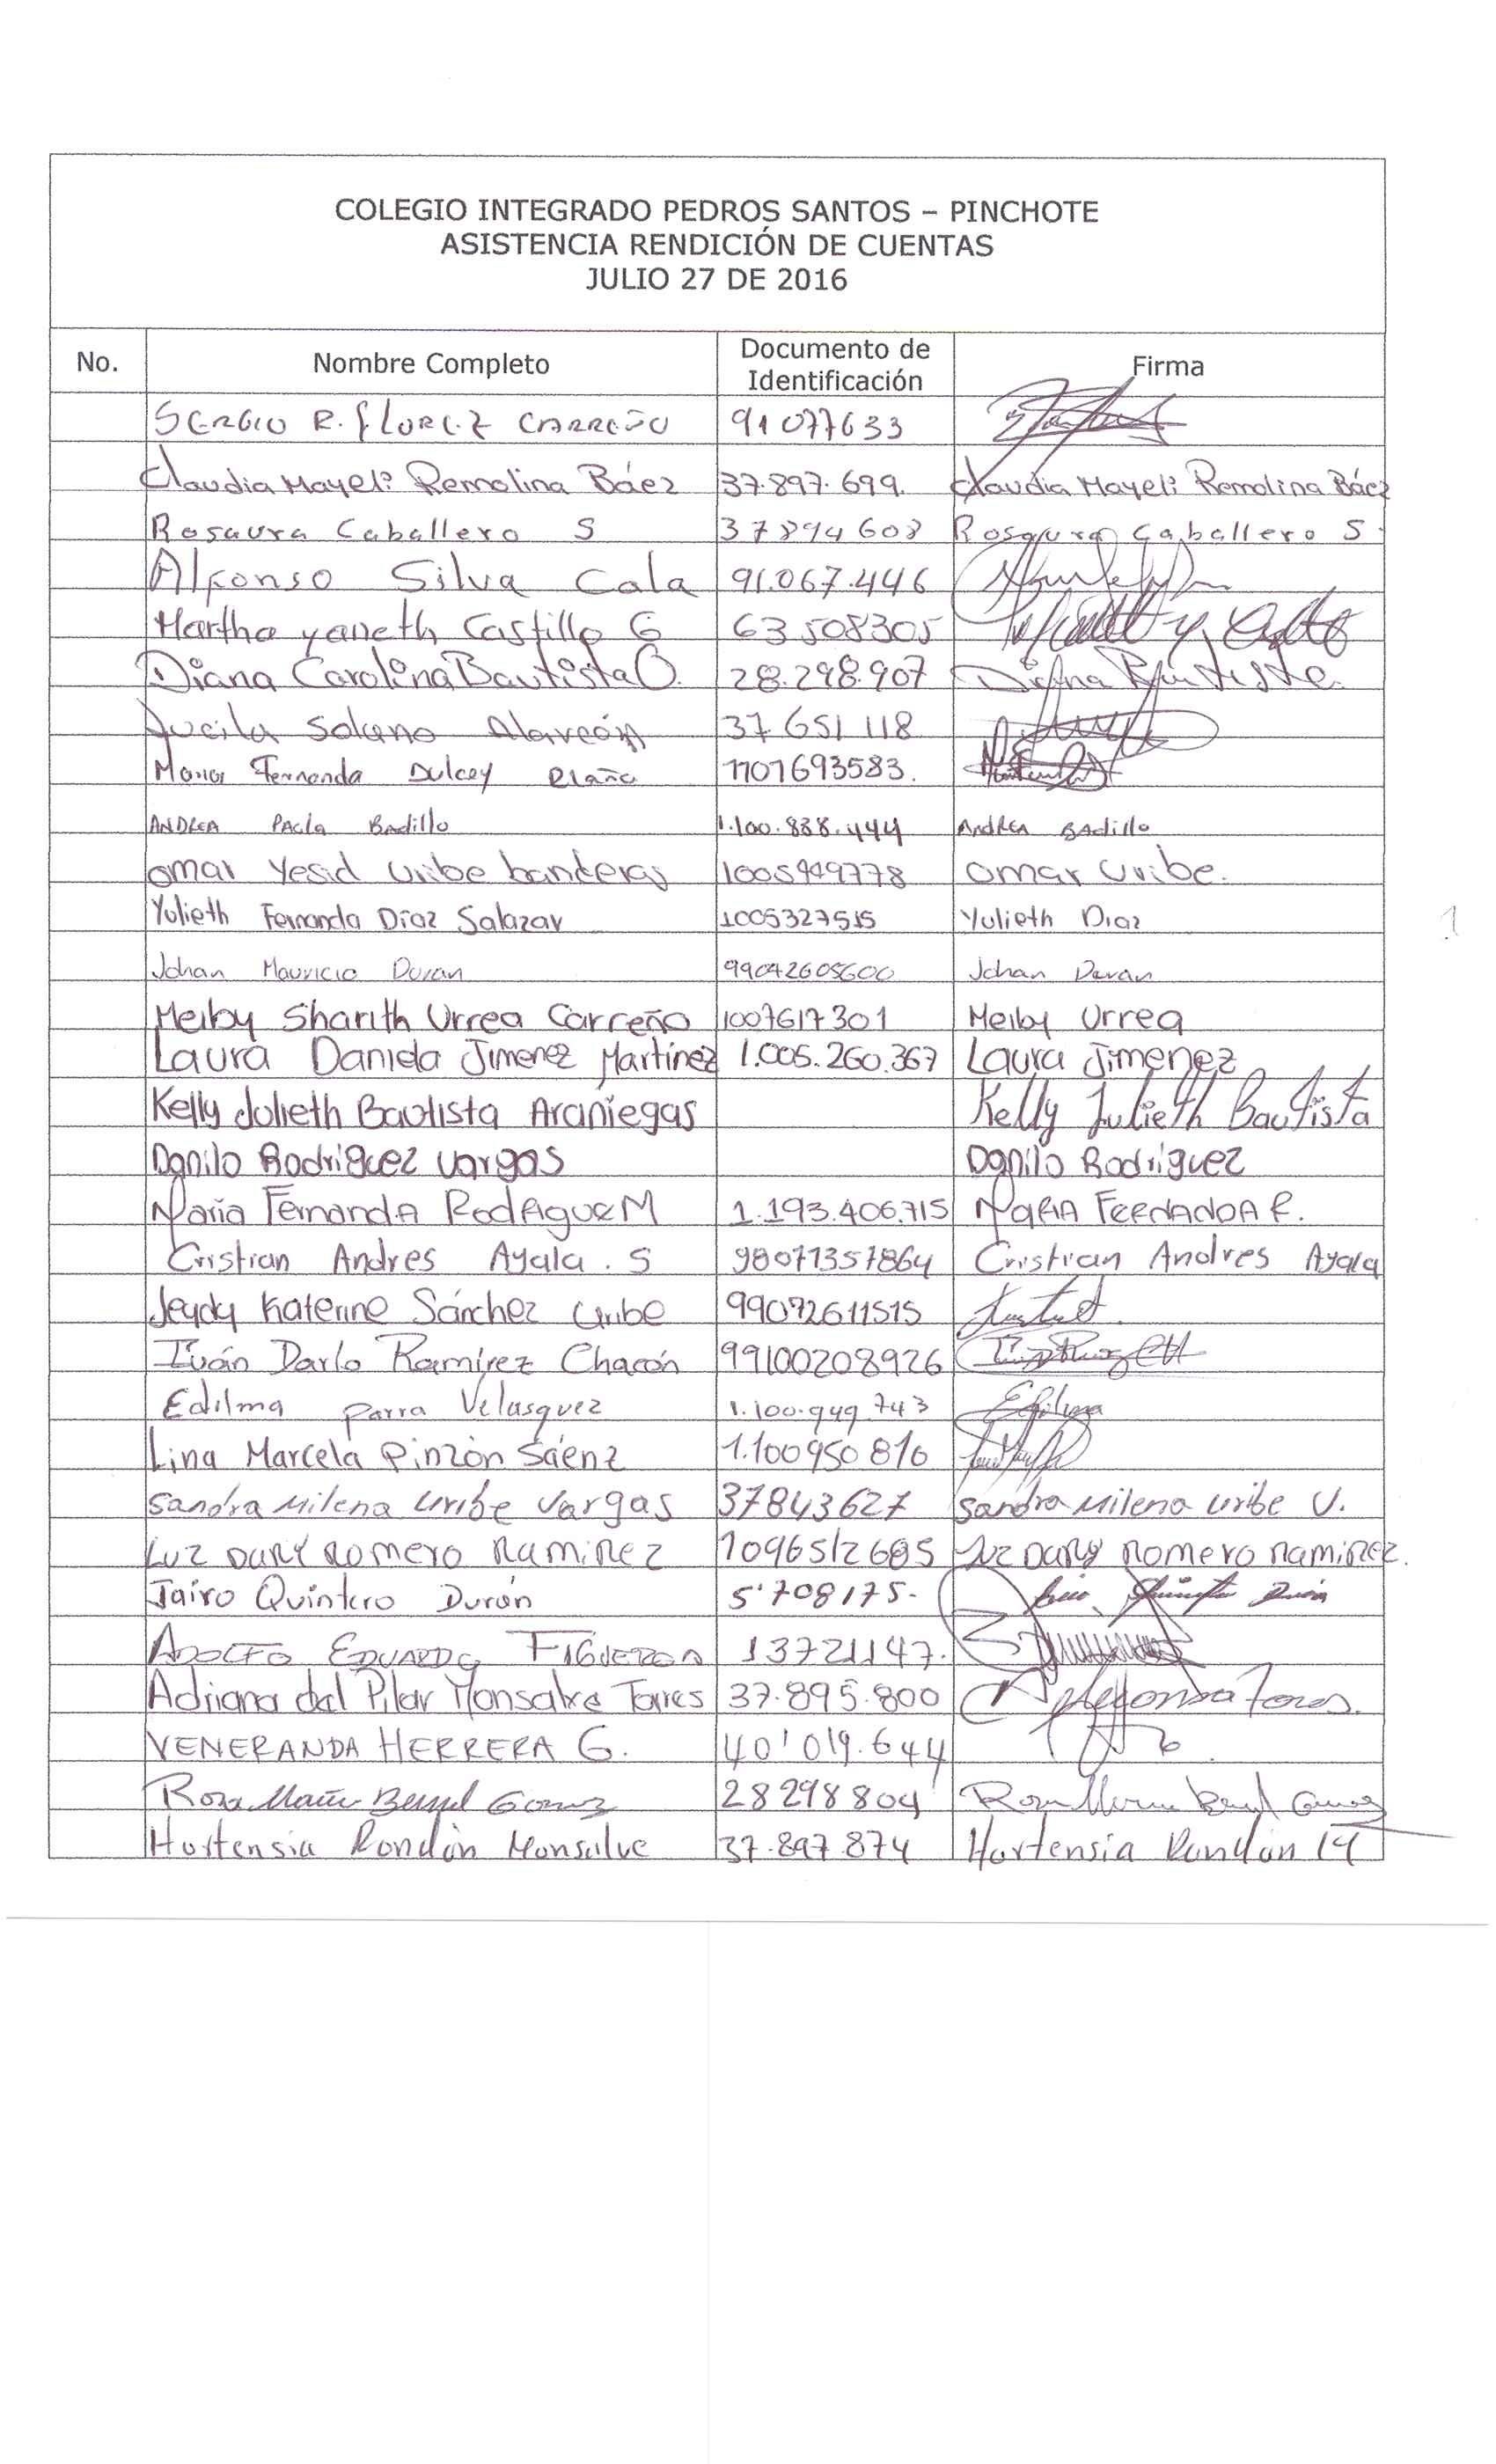 COLEGIO INTEGRADO PEDROS SANTOS – PINCHOTE
ASISTENCIA RENDICIÓN DE CUENTAS
JULIO 27 DE 2016
No. Nombre Completo Documento de Identificación Firma
SERGIO R. FLOREZ CARREÑO 91077633
Claudia Mayeli Remolina Báez 37.897.699. Claudia Mayeli Remolina Báez
Rosaura Caballero S 37894608 Rosaura Caballero S.
Alfonso Silva Cala 91.067.446
Martha yaneth Castillo G 63508305
Diana Carolina Bautista O. 28.298.907 Diana Bautista.
Lucila Solano Alarcón 37651118
Maria Fernanda Dulcey 1101693583.
ANDREA PAola BAdillo 1.100.888.444 ANdREA BAdillo
omar Yesid Uribe banderas 1005449778 omar Uribe.
Yulieth Fernanda Díaz Salazar 1005327515 Yulieth Diaz
Johan Mauricio Duran 99042605600 Johan Duran
Meiby Sharith Urrea Carreño 1007617301 Meiby Urrea
Laura Daniela Jimenez Martínez 1.005.260.367 Laura Jimenez
Kelly Julieth Bautista Araniegas Kelly Julieth Bautista
Danilo Rodriguez vargas Danilo Rodriguez
Maria Fernanda RodRigueZ M 1.193.406.715 MaRIA FERNANDA R.
Cristian Andres Ayala . S 98071357864 Cristian Andres Ayala
Jeydy Katerine Sánchez Uribe 99072611515
Iván Darío Ramírez Chacón 99100208926
Edilma parra Velasquez 1.100.949.743 Edilma
Lina Marcela Pinzón Sáenz 1.100950816
Sandra Milena Uribe Vargas 37843627 Sandra Milena Uribe V.
LUZ DARY ROMERO RAMIREZ 1096512685 LUZ DARY ROMERO RAMIREZ.
Jairo Quintero Durán 5'708175. Jairo Quintero Durán
ADOLFO EDUARDO FIGUEROA 13721147.
Adriana del Pilar Monsalve Torres 37.895.800
VENERANDA HERRERA G. 40'019.644
Rosa María Gomez 28298804
Hortensia Rondón Monsalve 37.897.874 Hortensia Rondón M
1